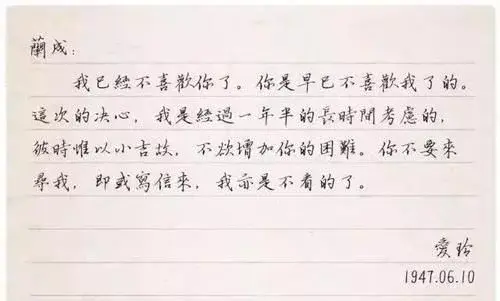 蘭成：
我已經不喜歡你了。你是早已不喜歡我了的。
這次的决心，我是經過一年半的長時間考慮的，
彼時惟以小吉故，不欲增加你的困難。你不要來
尋我，即或寫信來，我亦是不看的了。
愛玲
1947.06.10